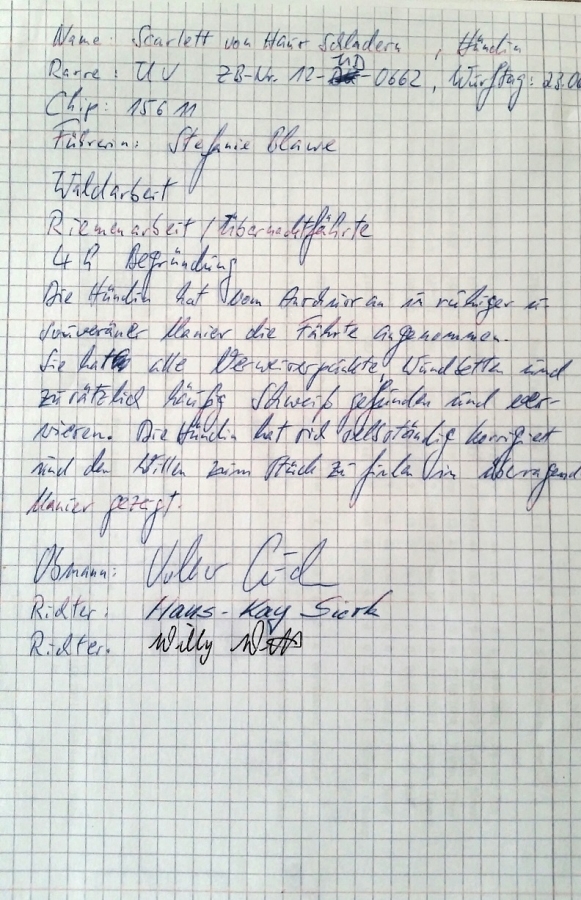 Name: Scarlett vom Haus Schladern, Hündin
Rasse: UV ZB-Nr. 12-UD-0662, Wurftag: 23.0
Chip: 15611
Führerin: Stefanie Blawe
Waldarbeit
Riemenarbeit / Übernachtfährte
4h Begründung
Die Hündin hat vom Anschuss an in ruhiger u.
souveräner Manier die Fährte angenommen.
Sie hat alle Verweiserpunkte, Wundbetten und
zusätzlich häufig Schweiß gefunden und ver-
wiesen. Die Hündin hat sich selbständig korrigiert
und den Willen zum Stück zu finden in überragend
Manier gezeigt.
Obmann: Volker
Richter: Hans-Kay Sierk
Richter. Willy